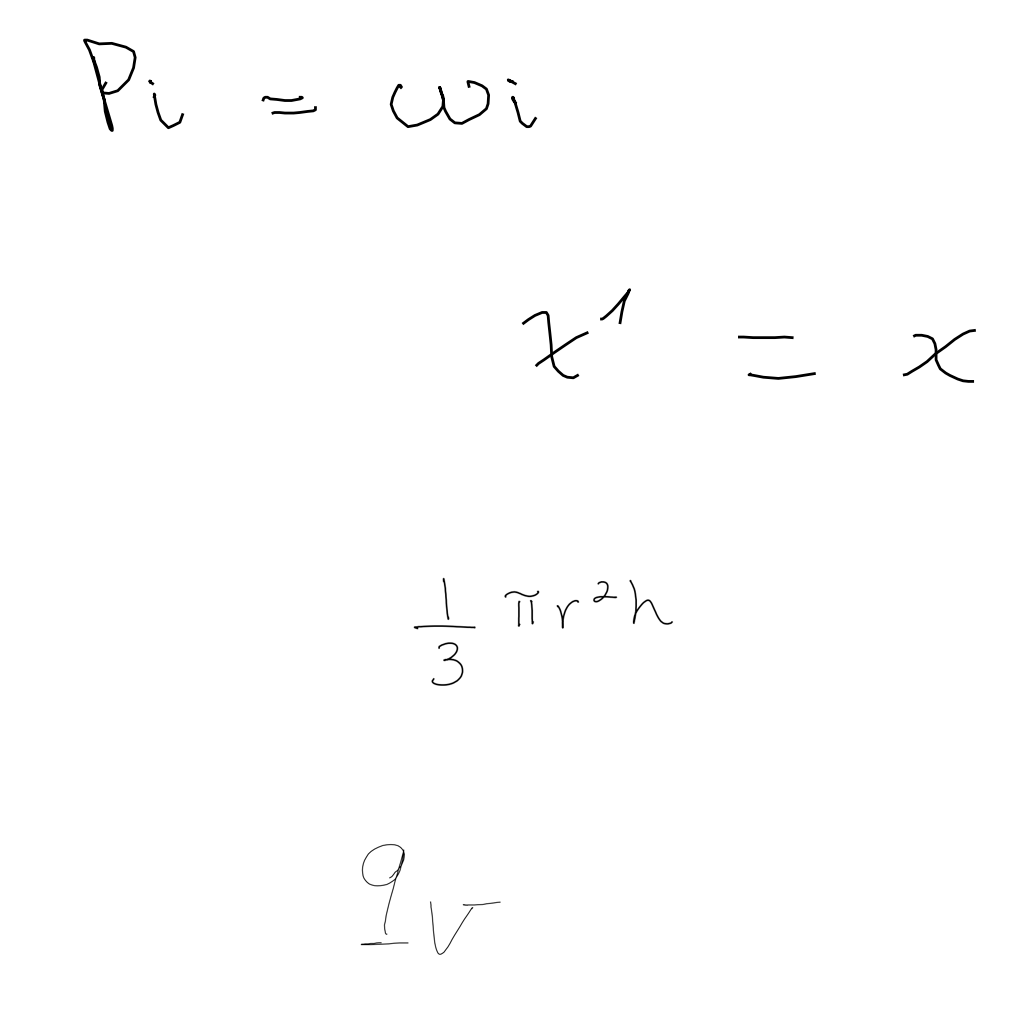 Pi = ωi
x¹ = x
1/3 πr²h
q̲v